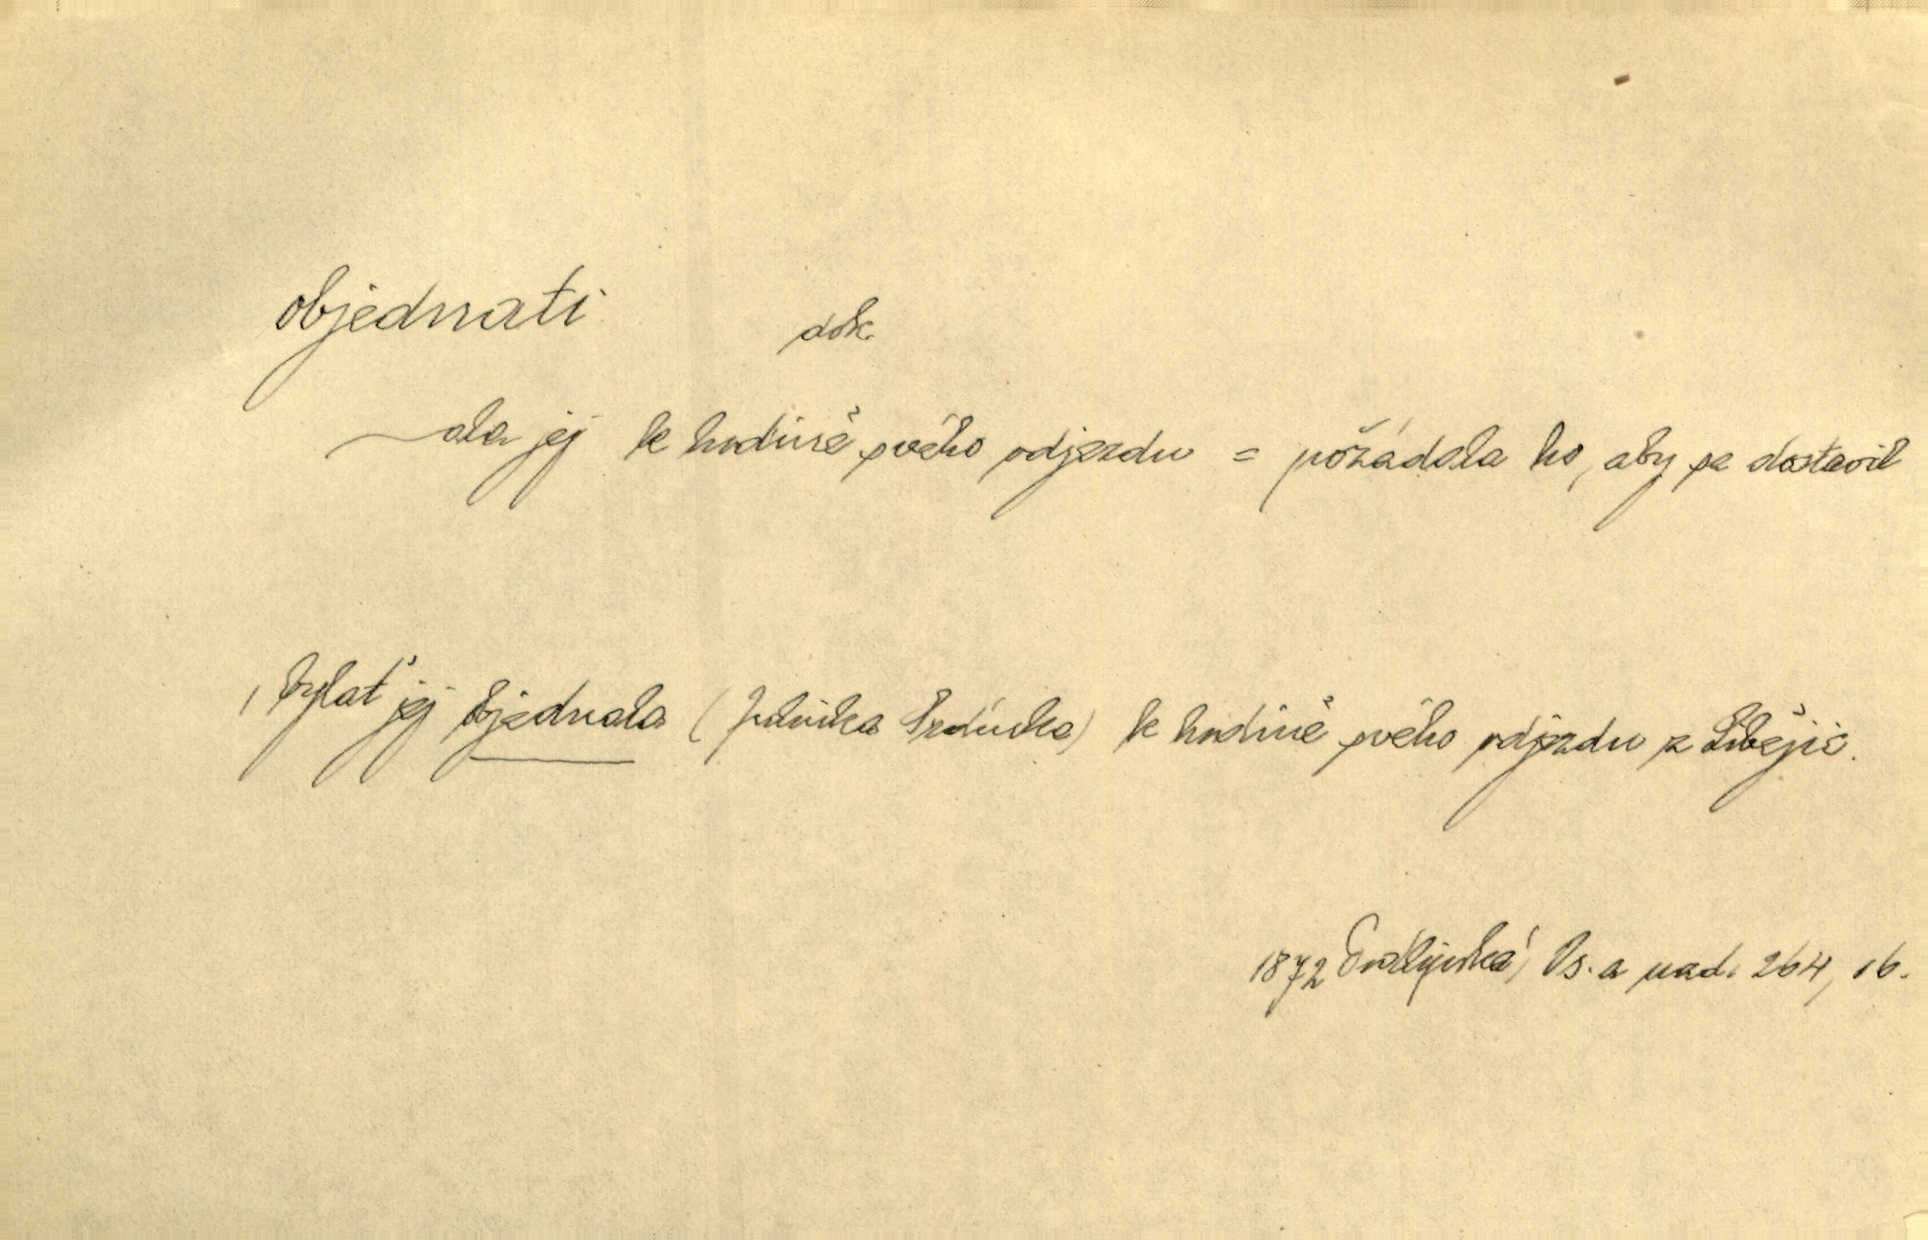 objednati dok.
—ala jej k hodině svého odjezdu = požádala ho, aby se dostavil
, bylať jej objednala ( k hodině svého odjezdu z Libějic.
1872 Světlá, Vs. a nad. 264, 16.